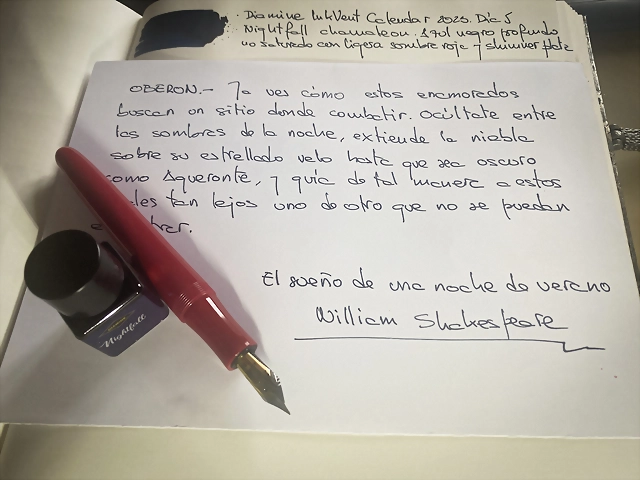 . Diamine InkVent Calendar 2025. Día 5
Nightfall chamaleon. Azul negro profundo
no saturado con ligera sombra roja y shimmer plata
OBERON.- Ya ves cómo estos enamorados
buscan un sitio donde combatir. Ocúltate entre
las sombras de la noche, extiende la niebla
sobre su estrellado velo hasta que sea oscuro
como Aqueronte, y guía de tal manera a estos
tan lejos uno de otro que no se puedan
El sueño de una noche de verano
William Shakespeare
Nightfall